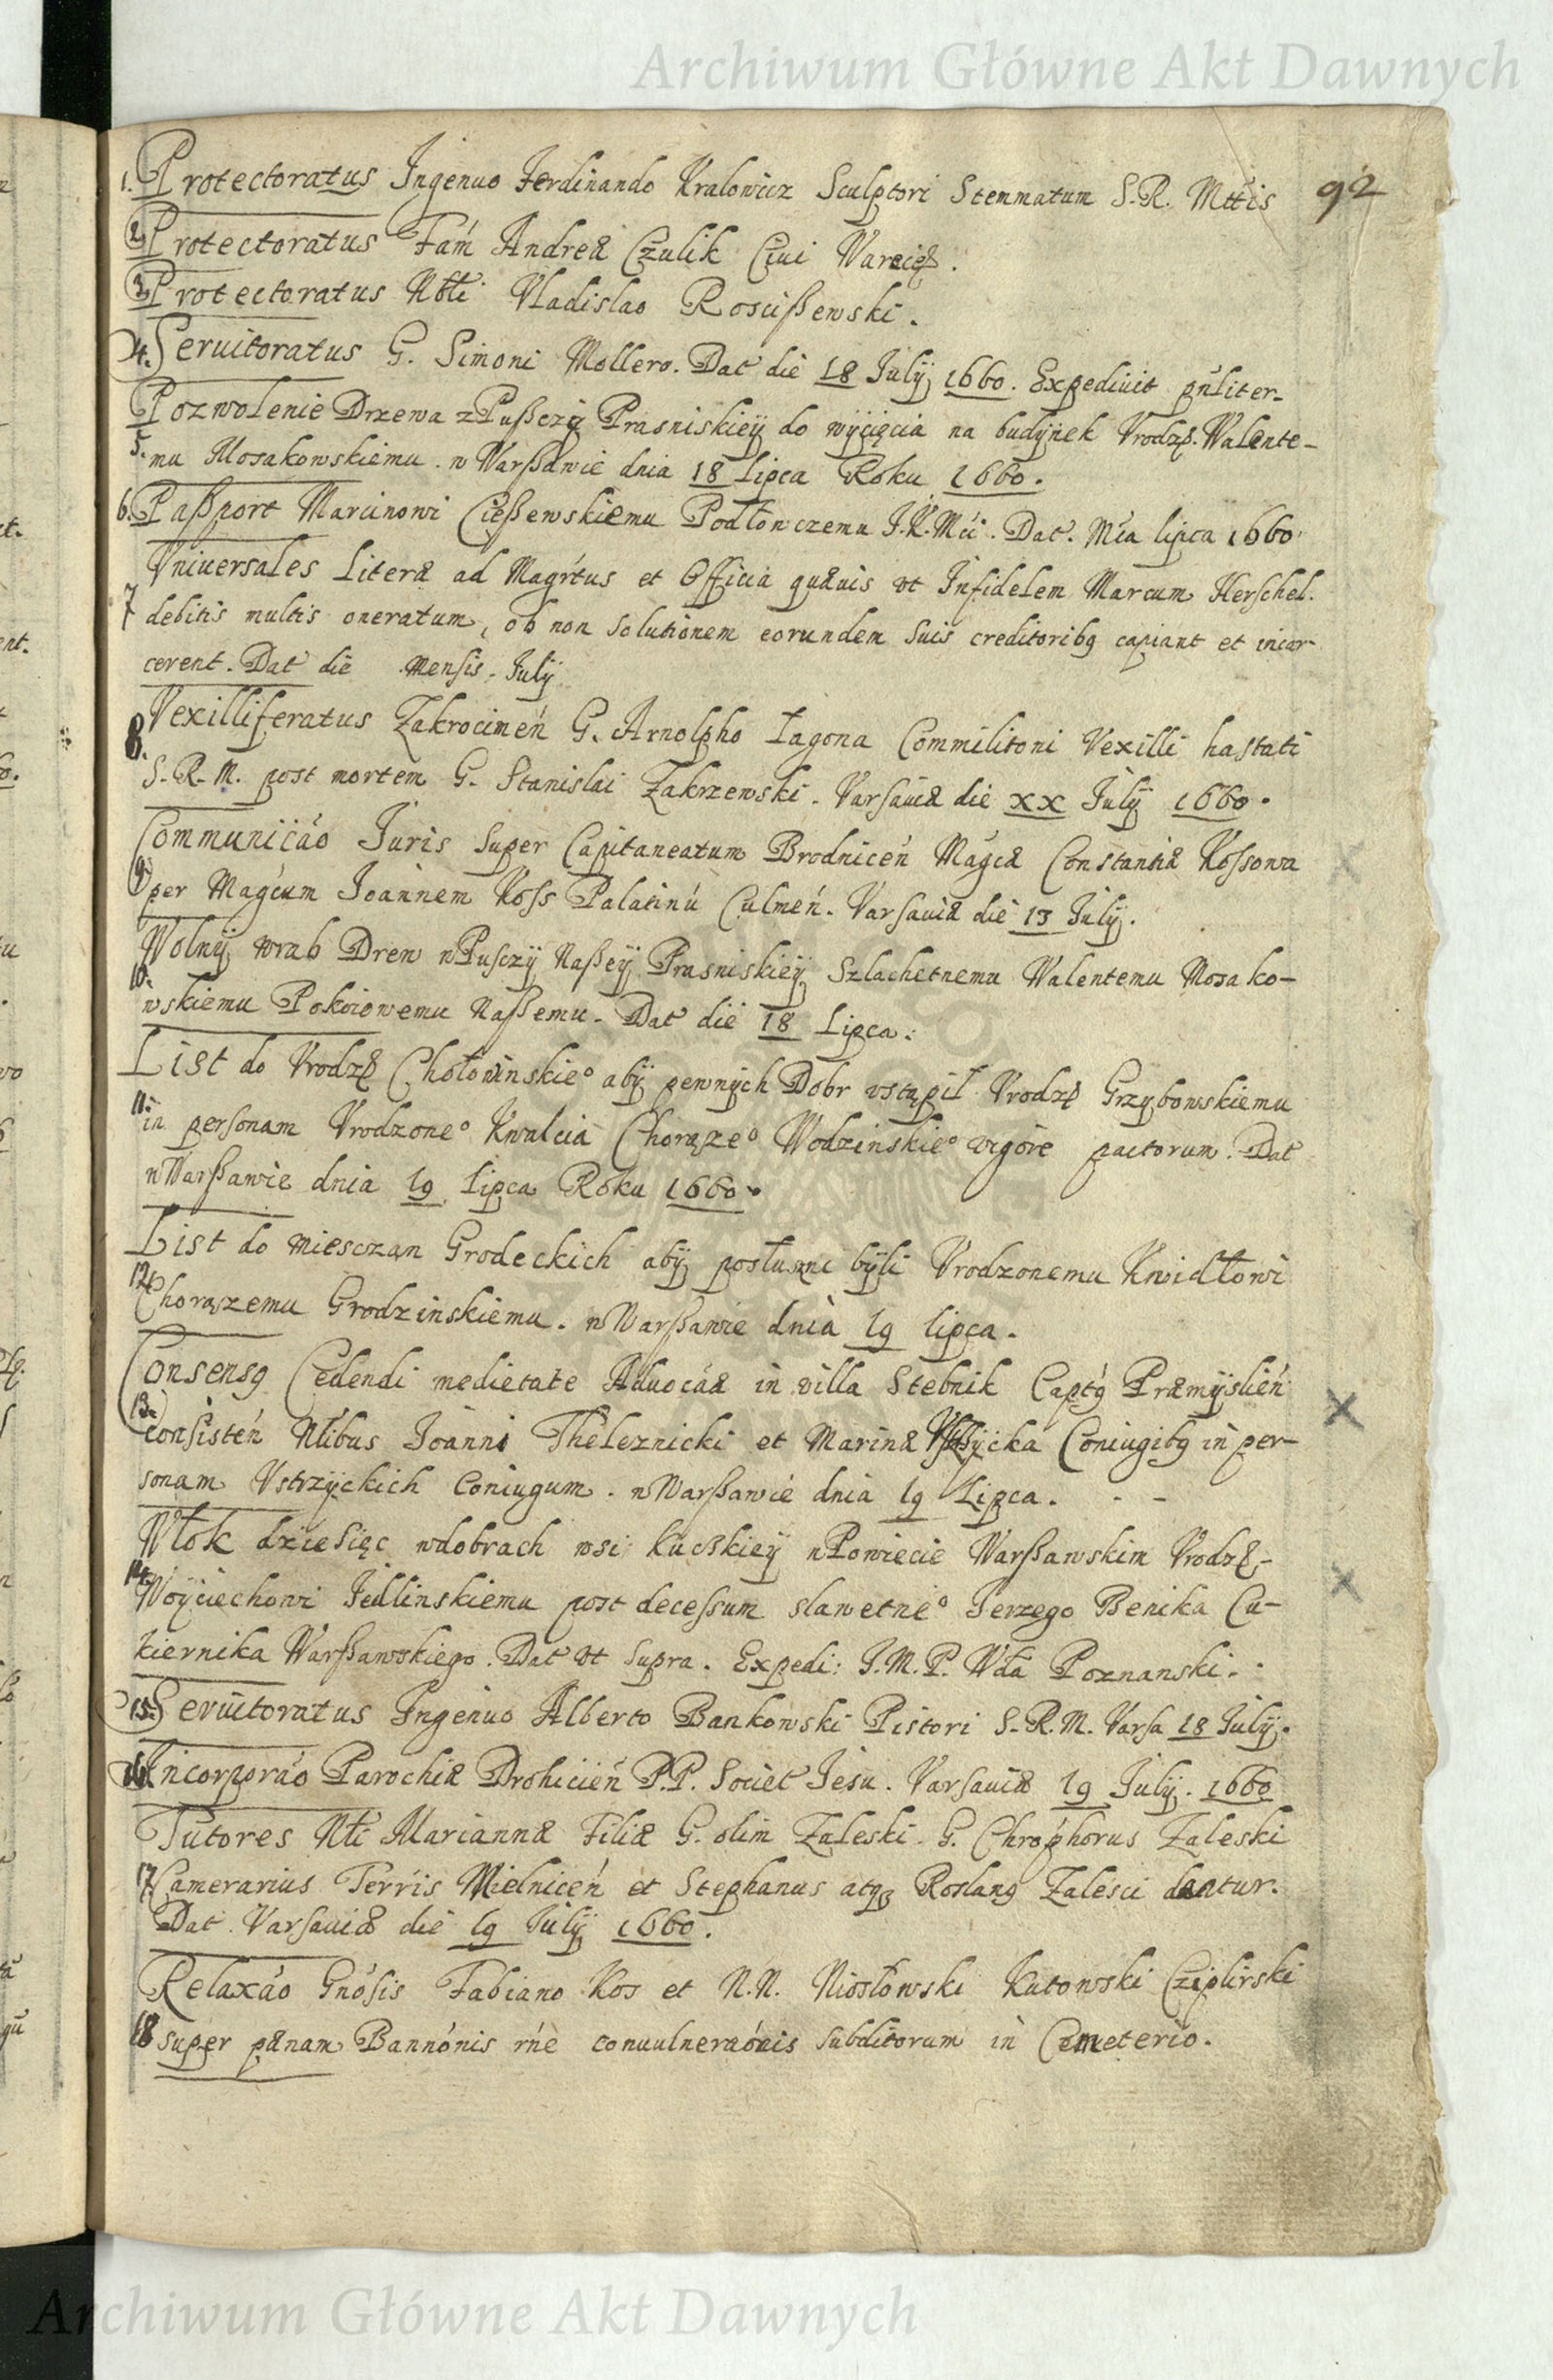 Archiwum Główne Akt Dawnych
92
1. Protectoratus Ingenuo Ferdinando Kralowicz Sculptori Stemmatum S. R. Mttis
2. Protectoratus Fam Andreæ Czulik Ciui Warecię.
3. Protectoratus Nbli Vladislao Rosciszewski.
4. Seruitoratus G. Simoni Mollero. Dat die 18 July 1660. Expediuit pnliter.
Pozwolenie Drzewa z Pußczy Prasniskiey do wycięcia na budynek Vrodzę. Walente-
5. mu Mosakowskiemu. w Warßawie dnia 18 Lipca Roku 1660.
6. Paßport Marcinowi Cießewskiemu Podłowczemu J. K. Mci. Dat. Mca lipca 1660
Vniuersales Literæ ad Magrtus et Officia quæuis vt Infidelem Marcum Herschel.
7 debitis multis oneratum, ob non solutionem eorundem suis creditoribq capiant et incar-
cerent. Dat die mensis July
Vexilliferatus Zakrocimeń G. Arnolpho Łagona Commilitoni Vexilli hastati
8. S. R. M. post mortem G. Stanislai Zakrzewski. Varsauiæ die xx July 1660.
Communicáo Juris super Capitaneatum Brodniceń Magcæ Constantiæ Kossowa
9. per Magcum Joannem Koss Palatinú Culmeń. Varsauiæ die 13 July.
Wolny wrab Drew w Pusczy Naßey Prasniskiey Szlachetnemu Walentemu Mosako-
10. wskiemu Pokoiowemu Naßemu. Dat die 18 Lipca.
List do Vrodzę Chołowinskieo aby pewnych Dobr vstąpił Vrodzę Grzybowskiemu
11. in personam Vrodzoneo Kwalcia Chorązeo Wodzinskieo vigore pactorum. Dat
w Warßawie dnia 19 Lipca Roku 1660.
List do miesczan Grodeckich aby posłuszni byli Vrodzonemu Kwidłowi
12. Chorązemu Grodzinskiemu. w Warßawie dnia 19 lipca.
Consensq Cedendi medietate Aduocáæ in villa Stebnik Captq Præmysleń
13. consisteń Nlibus Joanni Theleznicki et Marinæ Coniugibq in per-
sonam Vstrzyckich Coniugum. w Warßawie dnia 19 Lipca. - -
Włok dziesięc w dobrach wsi w Powiecie Warßawskim Vrodzę.-
14. Woyciechowi Jedlinskiemu post decessum slawetneo Jerzego Benika Cu-
kiernika Warßawskiego. Dat vt supra. Expedi: J. M. P. Wda Poznanski.
15. Seruitoratus Ingenuo Alberto Bankowski Pistori S. R. M. Varsa 18 July.
16. Incorporáo Parochiæ Drohicień P.P. Societ Jesu. Varsauiæ 19 July. 1660
Tutores Nli Mariannæ Filiæ G. olim Zaleski G. Chrophorus Zaleski
17. Camerarius Terris Mielniceń et Stephanus atqz Roslanq Zalesci dantur.
Dat Varsauiæ die 19 July 1660.
Relaxáo Gnósis Fabiano Kos et N.N. Niosłowski Kutowski
18 super pænam Bannónis rńe conuulneraónis subditorum in Cemeterio.
Archiwum Główne Akt Dawnych